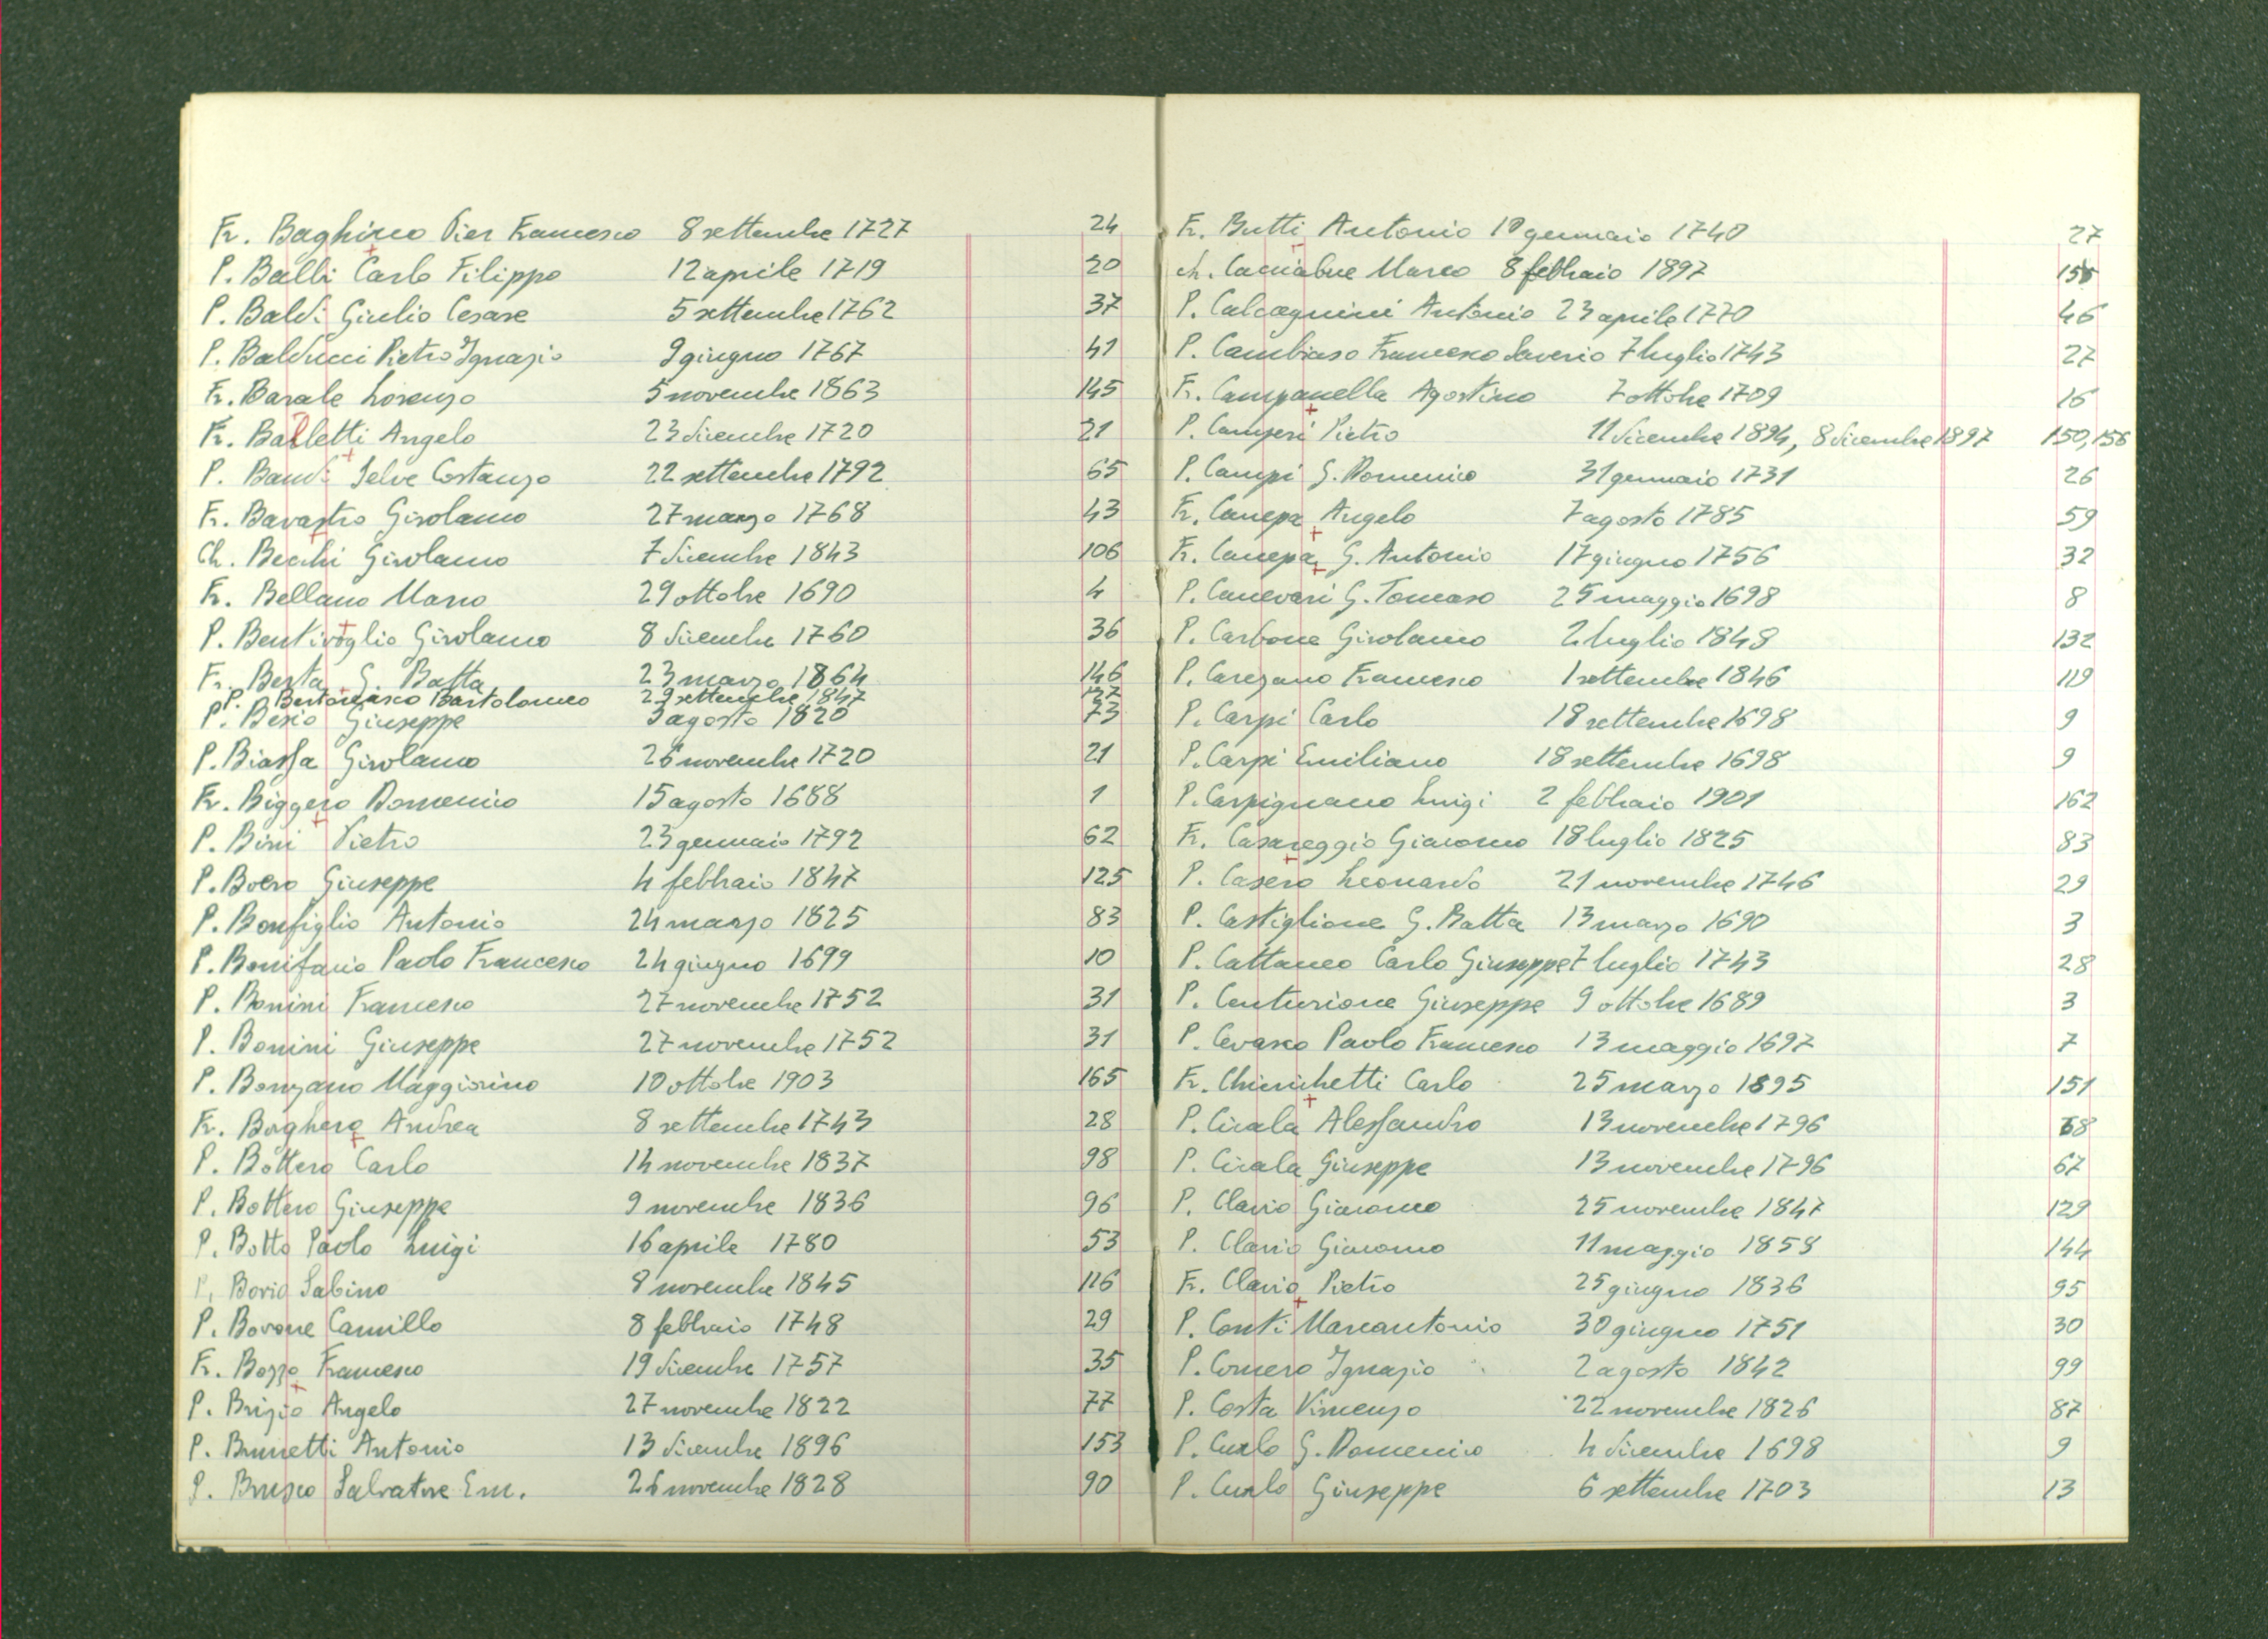 Fr. Baghino Pier Francesco 8 settembre 1727 24
P. Balbi Carlo Filippo 12 aprile 1719 20
P. Baldi Giulio Cesare 5 settembre 1762 37
P. Balducci Pietro Ignazio 9 giugno 1767 41
Fr. Barale Lorenzo 5 novembre 1863 145
Fr. Balletti Angelo 23 dicembre 1720 21
P. Bandi Selve Costanzo 22 settembre 1792 65
Fr. Bavastro Girolamo 27 marzo 1768 43
Ch. Becchi Girolamo 7 dicembre 1843 106
Fr. Bellano Marco 29 ottobre 1690 4
P. Bentivoglio Girolamo 8 dicembre 1760 36
Fr. Berta G. Batta 23 marzo 1864 146
P. Bartolomeo 29 settembre 1847
P. Besio Giuseppe 3 agosto 1820 73
P. Biassa Girolamo 26 novembre 1720 21
Fr. Biggero Domenico 15 agosto 1688 1
P. Bini Pietro 23 gennaio 1792 62
P. Boero Giuseppe 4 febbraio 1847 125
P. Bonfiglio Antonio 24 marzo 1825 83
P. Bonifacio Paolo Francesco 24 giugno 1699 10
P. Bonini Francesco 27 novembre 1752 31
P. Bonini Giuseppe 27 novembre 1752 31
P. Bonzano Maggiorino 10 ottobre 1903 165
Fr. Borghero Andrea 8 settembre 1743 28
P. Bottero Carlo 14 novembre 1837 98
P. Bottero Giuseppe 9 novembre 1836 96
P. Botto Paolo Luigi 16 aprile 1780 53
P. Bovio Sabino 8 novembre 1845 116
P. Bovone Camillo 8 febbraio 1748 29
Fr. Bozzo Francesco 19 dicembre 1757 35
P. Brizio Angelo 27 novembre 1822 77
P. Brunetti Antonio 13 dicembre 1896 153
P. Brusco Salvatore Em. 26 novembre 1828 90
Fr. Butti Antonio 10 gennaio 1740 27
ch. Cacciabue Marco 8 febbraio 1897 155
P. Calcagnini Antonio 23 aprile 1770 46
P. Cambiaso Francesco Saverio 7 luglio 1743 27
Fr. Campanella Agostino 7 ottobre 1709 16
P. Camperi Pietro 11 dicembre 1894, 8 dicembre 1897 150, 156
P. Campi G. Domenico 31 gennaio 1731 26
Fr. Canepa Angelo 7 agosto 1785 59
Fr. Canepa G. Antonio 17 giugno 1756 32
P. Canevari G. Tomaso 25 maggio 1698 8
P. Carbone Girolamo 2 luglio 1848 132
P. Carezano Francesco 1 settembre 1846 119
P. Carpi Carlo 18 settembre 1698 9
P. Carpi Emiliano 18 settembre 1698 9
P. Carpignano Luigi 2 febbraio 1901 162
Fr. Casareggio Giacomo 18 luglio 1825 83
P. Casero Leonardo 21 novembre 1746 29
P. Castiglione G. Batta 13 marzo 1690 3
P. Cattaneo Carlo Giuseppe 7 luglio 1743 28
P. Centurione Giuseppe 9 ottobre 1689 3
P. Cevasco Paolo Francesco 13 maggio 1697 7
Fr. Chierichetti Carlo 25 marzo 1895 151
P. Cicala Alessandro 13 novembre 1796 68
P. Cicala Giuseppe 13 novembre 1796 67
P. Clavio Giacomo 25 novembre 1847 129
P. Clavio Giacomo 11 maggio 1858 144
Fr. Clavio Pietro 25 giugno 1836 95
P. Conti Marcantonio 30 giugno 1751 30
P. Cornero Ignazio 2 agosto 1842 99
P. Costa Vincenzo 22 novembre 1826 87
P. Curlo G. Domenico 4 dicembre 1698 9
P. Curlo Giuseppe 6 settembre 1703 13